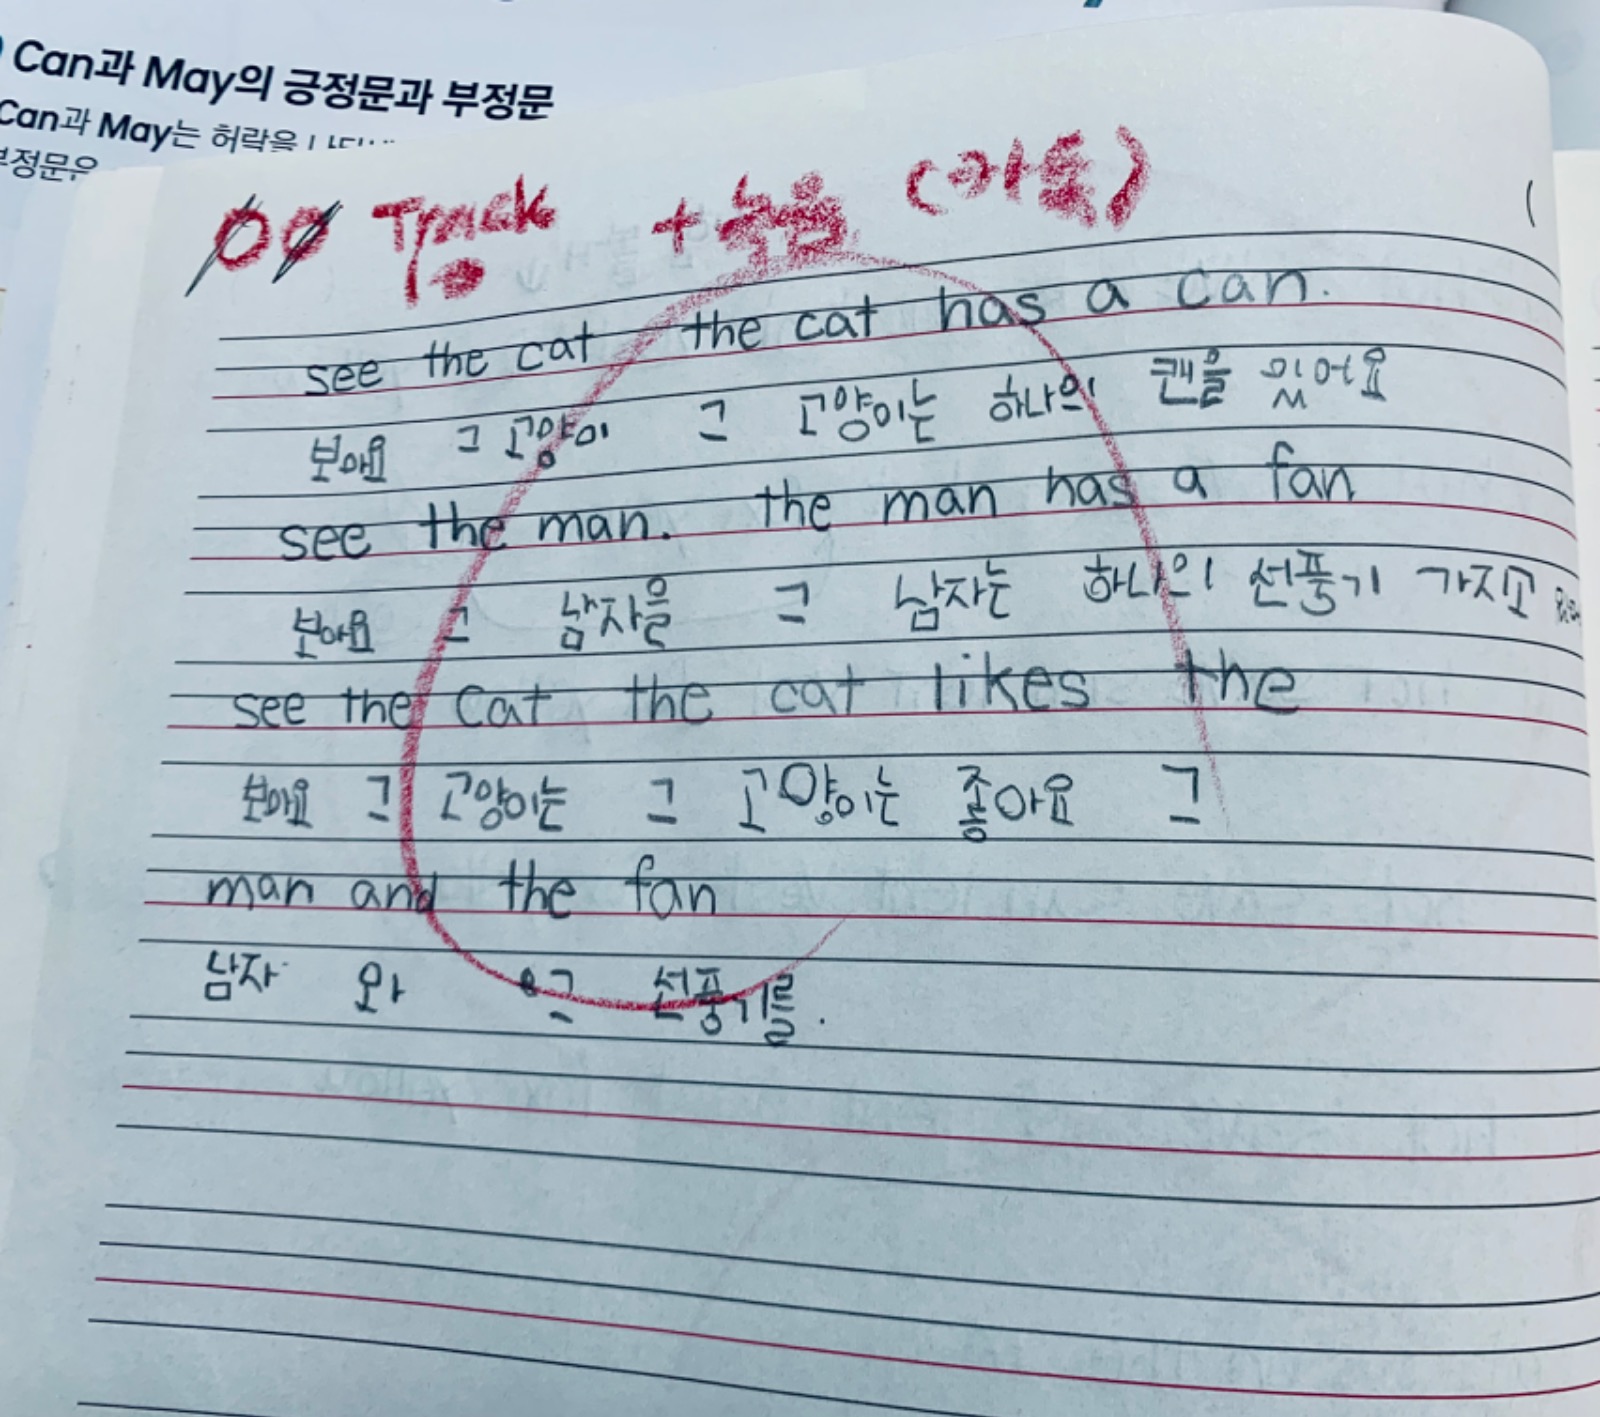 Can과 May의 긍정문과 부정문
Can과 May는 허락을
부정문은
Track + 녹음 (카톡)
see the cat the cat has a can.
보아요 그 고양이 그 고양이는 하나의 캔을 있어요
see the man. the man has a fan
보아요 그 남자을 그 남자는 하나의 선풍기 가지고
see the cat the cat likes the
보아요 그 고양이는 그 고양이는 좋아요 그
man and the fan
남자 와 그 선풍기를.